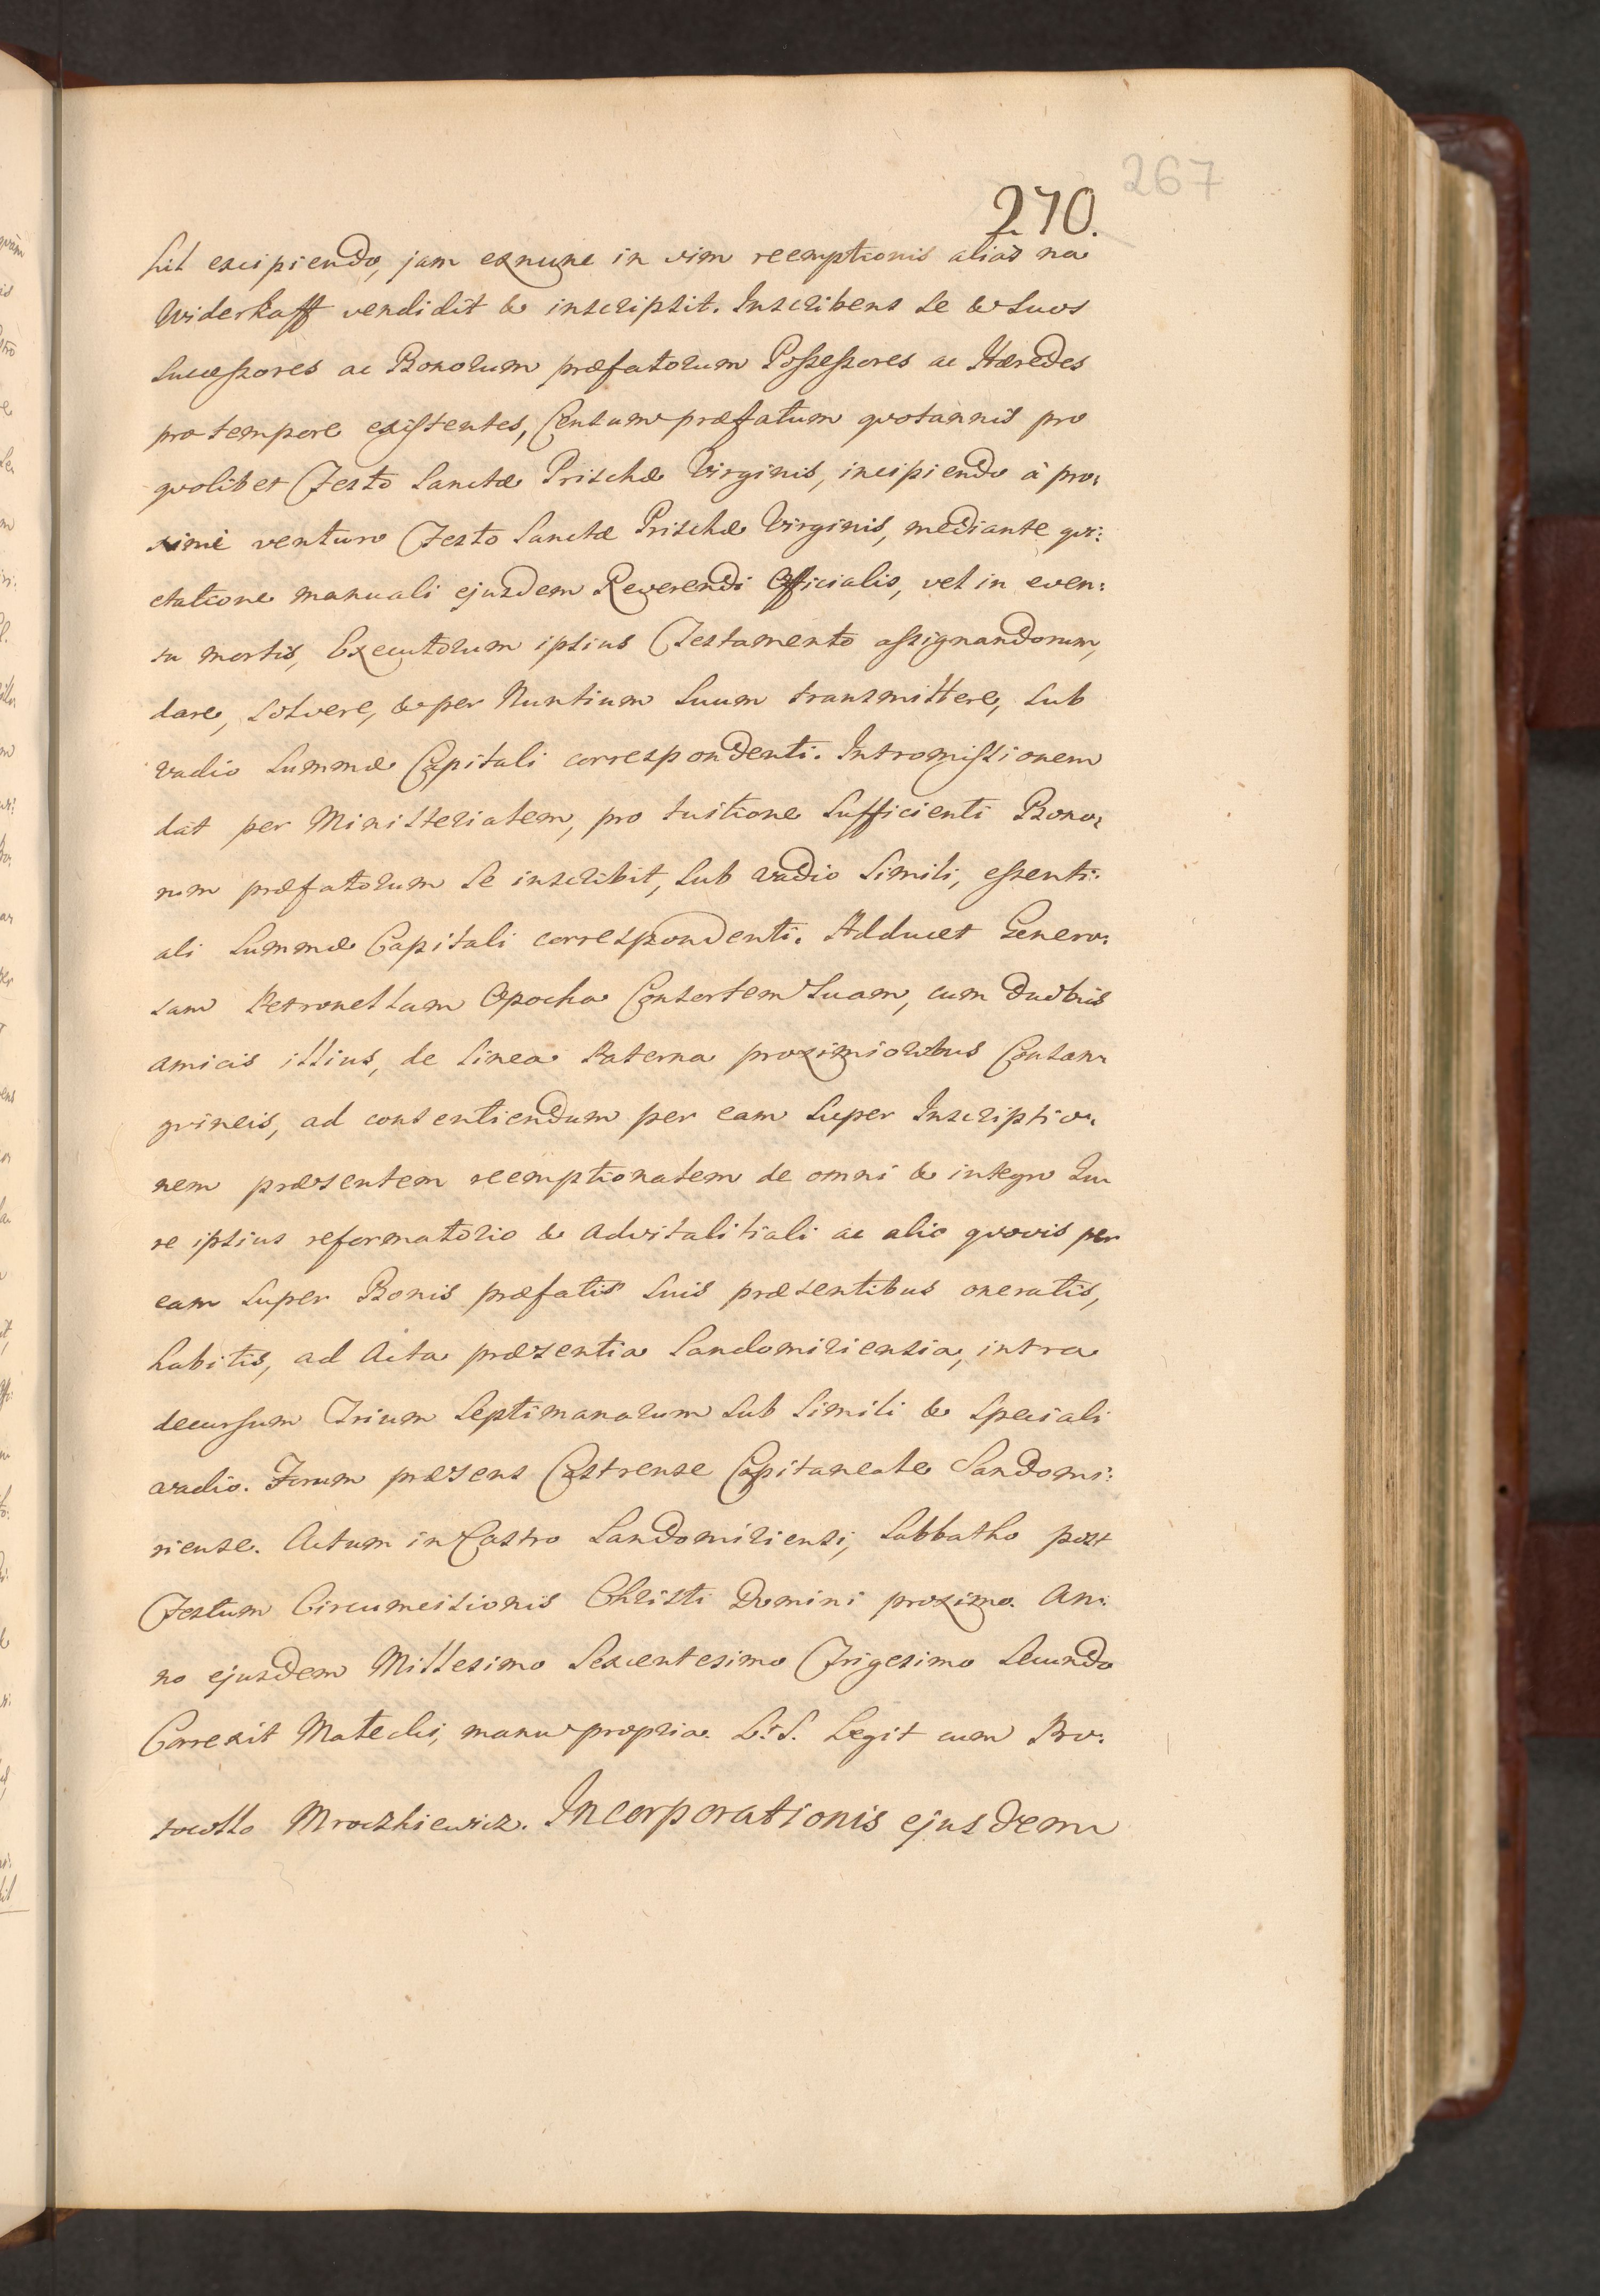 267
270.
hil excipiendo, jam exnunc in vim reemptionis alias na
Widerkaff vendidit & inscripsit. Inscribens se & suos
Successores ac Bonorum præfatorum Possessores ac Hæredes
pro tempore existentes, Censum præfatum quotannis pro
quolibet Festo Sanctæ Prischæ Virginis, incipiendo à pro:
ximè venturo Festo Sanctæ Prischæ Virginis, mediante qui:
etatione manuali ejusdem Reverendi Officialis, vel in even:
tu mortis, Executorum ipsius Testamento assignandorum,
dare, solvere, & per Nuntium suum transmittere, sub
vadio Summæ Capitali correspondenti. Intromissionem
dat per Ministerialem, pro tuitione sufficienti Bono:
rum præfatorum se inscribit, sub vadio simili, essenti:
ali Summæ Capitali correspondenti. Adducet Genero:
sam Petronellam Opocka Consortem Suam, cum duobus
amicis illius, de linea Paterna proximioribus Consan:
gvineis, ad consentiendum per eam super Inscriptio:
nem præsentem reemptionalem de omni & integro Ju:
re ipsius reformatorio & advitalitiali ac alio quovis per
eam super Bonis præfatis suis præsentibus oneratis,
habitis, ad Acta præsentia Sandomiriensia, intra
decursum Trium Septimanarum sub simili & speciali
vadio. Forum præsens Castrense Capitaneale Sandomi:
riense. Actum in Castro Sandomiriensi, Sabbatho post
Festum Circumcisionis Christi Domini proximo. An:
no ejusdem Millesimo Sexcentesimo Trigesimo Secundo
Correxit Matecki, manu propria. L. S. Legit cum Pro:
tocollo Mroczkiewicz. Incorporationis ejusdem